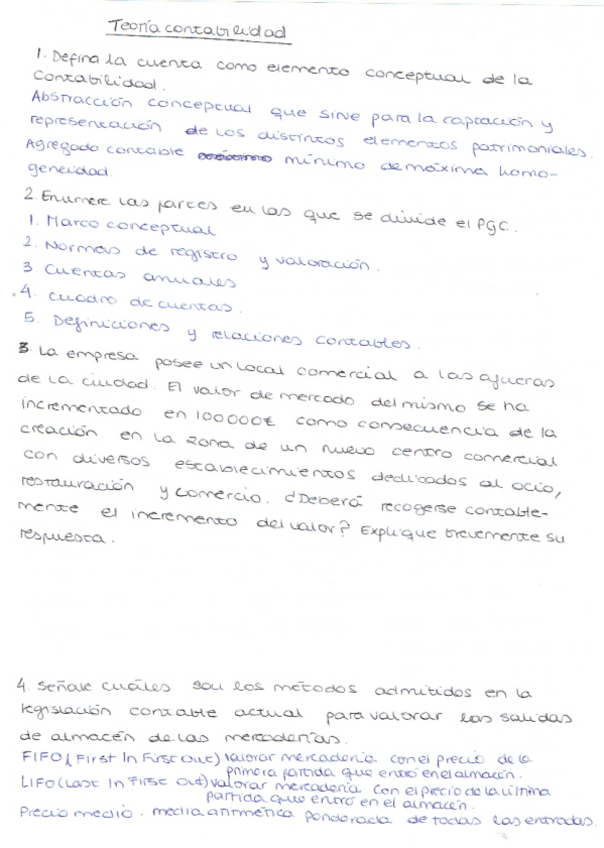 Teoría contabilidad
1. Defina la cuenta como elemento conceptual de la
Contabilidad.
Abstracción conceptual que sirve para la captación y
representación de los distintos elementos patrimoniales.
Agregado contable mínimo de máxima homo-
geneidad.
2. Enumere las partes en las que se divide el PGC.
1. Marco conceptual
2. Normas de registro y valoración.
3. Cuentas anuales
4. cuadro de cuentas.
5. Definiciones y relaciones contables.
3. La empresa posee un local comercial a las afueras
de la ciudad. El valor de mercado del mismo se ha
incrementado en 100000€ como consecuencia de la
creación en la zona de un nuevo centro comercial
con diversos establecimientos dedicados al ocio,
restauración y comercio. ¿Deberá recogerse contable-
mente el incremento del valor? Explique brevemente su
respuesta.
4. Señale cuáles son los métodos admitidos en la
legislación contable actual para valorar las salidas
de almacén de las mercaderías.
FIFO (First In First Out) valorar mercadería con el precio de la
primera partida que entró en el almacén.
LIFO (Last In First Out) valorar mercadería con el precio de la última
partida que entró en el almacén.
Precio medio. media aritmética ponderada de todas las entradas.